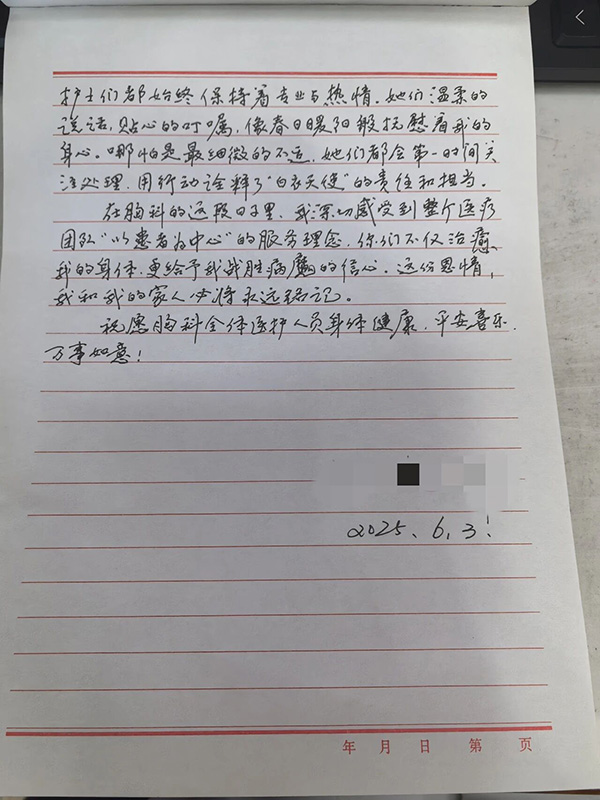 护士们都始终保持着专业与热情。她们温柔的
说话，贴心的叮嘱，像春日暖阳般抚慰着我的
身心。哪怕是最细微的不适，她们都会第一时间关
注处理，用行动诠释了“白衣天使”的责任和担当。
在胸科的这段日子里，我深切感受到整个医疗
团队“以患者为中心”的服务理念，你们不仅治愈
我的身体，更给予我战胜病魔的信心，这份恩情，
我和我的家人必将永远铭记。
祝愿胸科全体医护人员身体健康，平安喜乐，
万事如意！
2025、6、3！
年 月 日 第 页